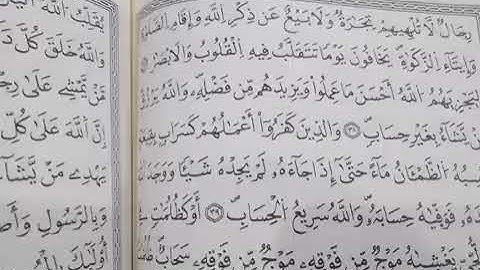 رِجَالٌ لَّا تُلْهِيهِمْ تِجَٰرَةٌ وَلَا بَيْعٌ عَن ذِكْرِ ٱللَّهِ وَإِقَامِ ٱلصَّلَوٰةِ
وَإِيتَآءِ ٱلزَّكَوٰةِ يَخَافُونَ يَوْمًا تَتَقَلَّبُ فِيهِ ٱلْقُلُوبُ وَٱلْأَبْصَٰرُ
لِيَجْزِيَهُمُ ٱللَّهُ أَحْسَنَ مَا عَمِلُوا۟ وَيَزِيدَهُم مِّن فَضْلِهِۦ وَٱللَّهُ يَرْزُقُ
مَن يَشَآءُ بِغَيْرِ حِسَابٍ ٣٨ وَٱلَّذِينَ كَفَرُوٓا۟ أَعْمَٰلُهُمْ كَسَرَابٍ بِقِيعَةٍ
ٱلظَّمْـَٔانُ مَآءً حَتَّىٰٓ إِذَا جَآءَهُۥ لَمْ يَجِدْهُ شَيْـًٔا وَوَجَدَ
فَوَفَّىٰهُ حِسَابَهُۥ وَٱللَّهُ سَرِيعُ ٱلْحِسَابِ ٣٩ أَوْ كَظُلُمَٰتٍ فِى
يَغْشَىٰهُ مَوْجٌ مِّن فَوْقِهِۦ مَوْجٌ مِّن فَوْقِهِۦ سَحَابٌ
يُقَلِّبُ ٱللَّهُ
وَٱللَّهُ خَلَقَ كُلَّ
مَّن يَمْشِى عَلَىٰ
إِنَّ ٱللَّهَ عَلَىٰ كُلِّ
يَهْدِى مَن يَشَآءُ
وَبِٱلرَّسُولِ
أُو۟لَٰٓئِكَ